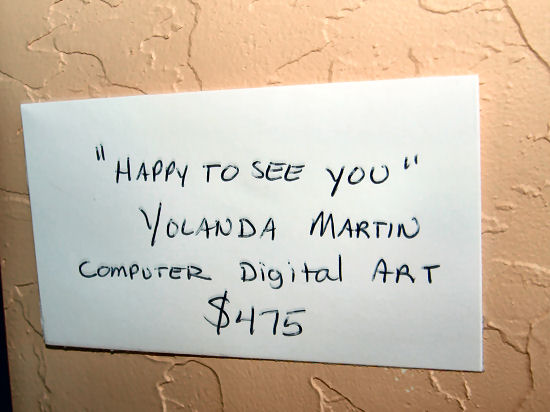 "HAPPY TO SEE YOU"
YOLANDA MARTIN
COMPUTER Digital ART
$475